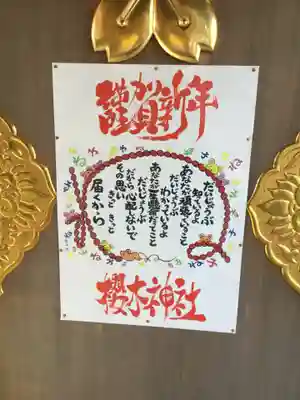 謹賀新年
だいじょうぶ
あなたが頑張ってること
知ってるよ
だいじょうぶ
わかっているよ
あなたが一生懸命だってこと
だいじょうぶ
だから心配しないで
その思い
きっと きっと
届くから
櫻木神社